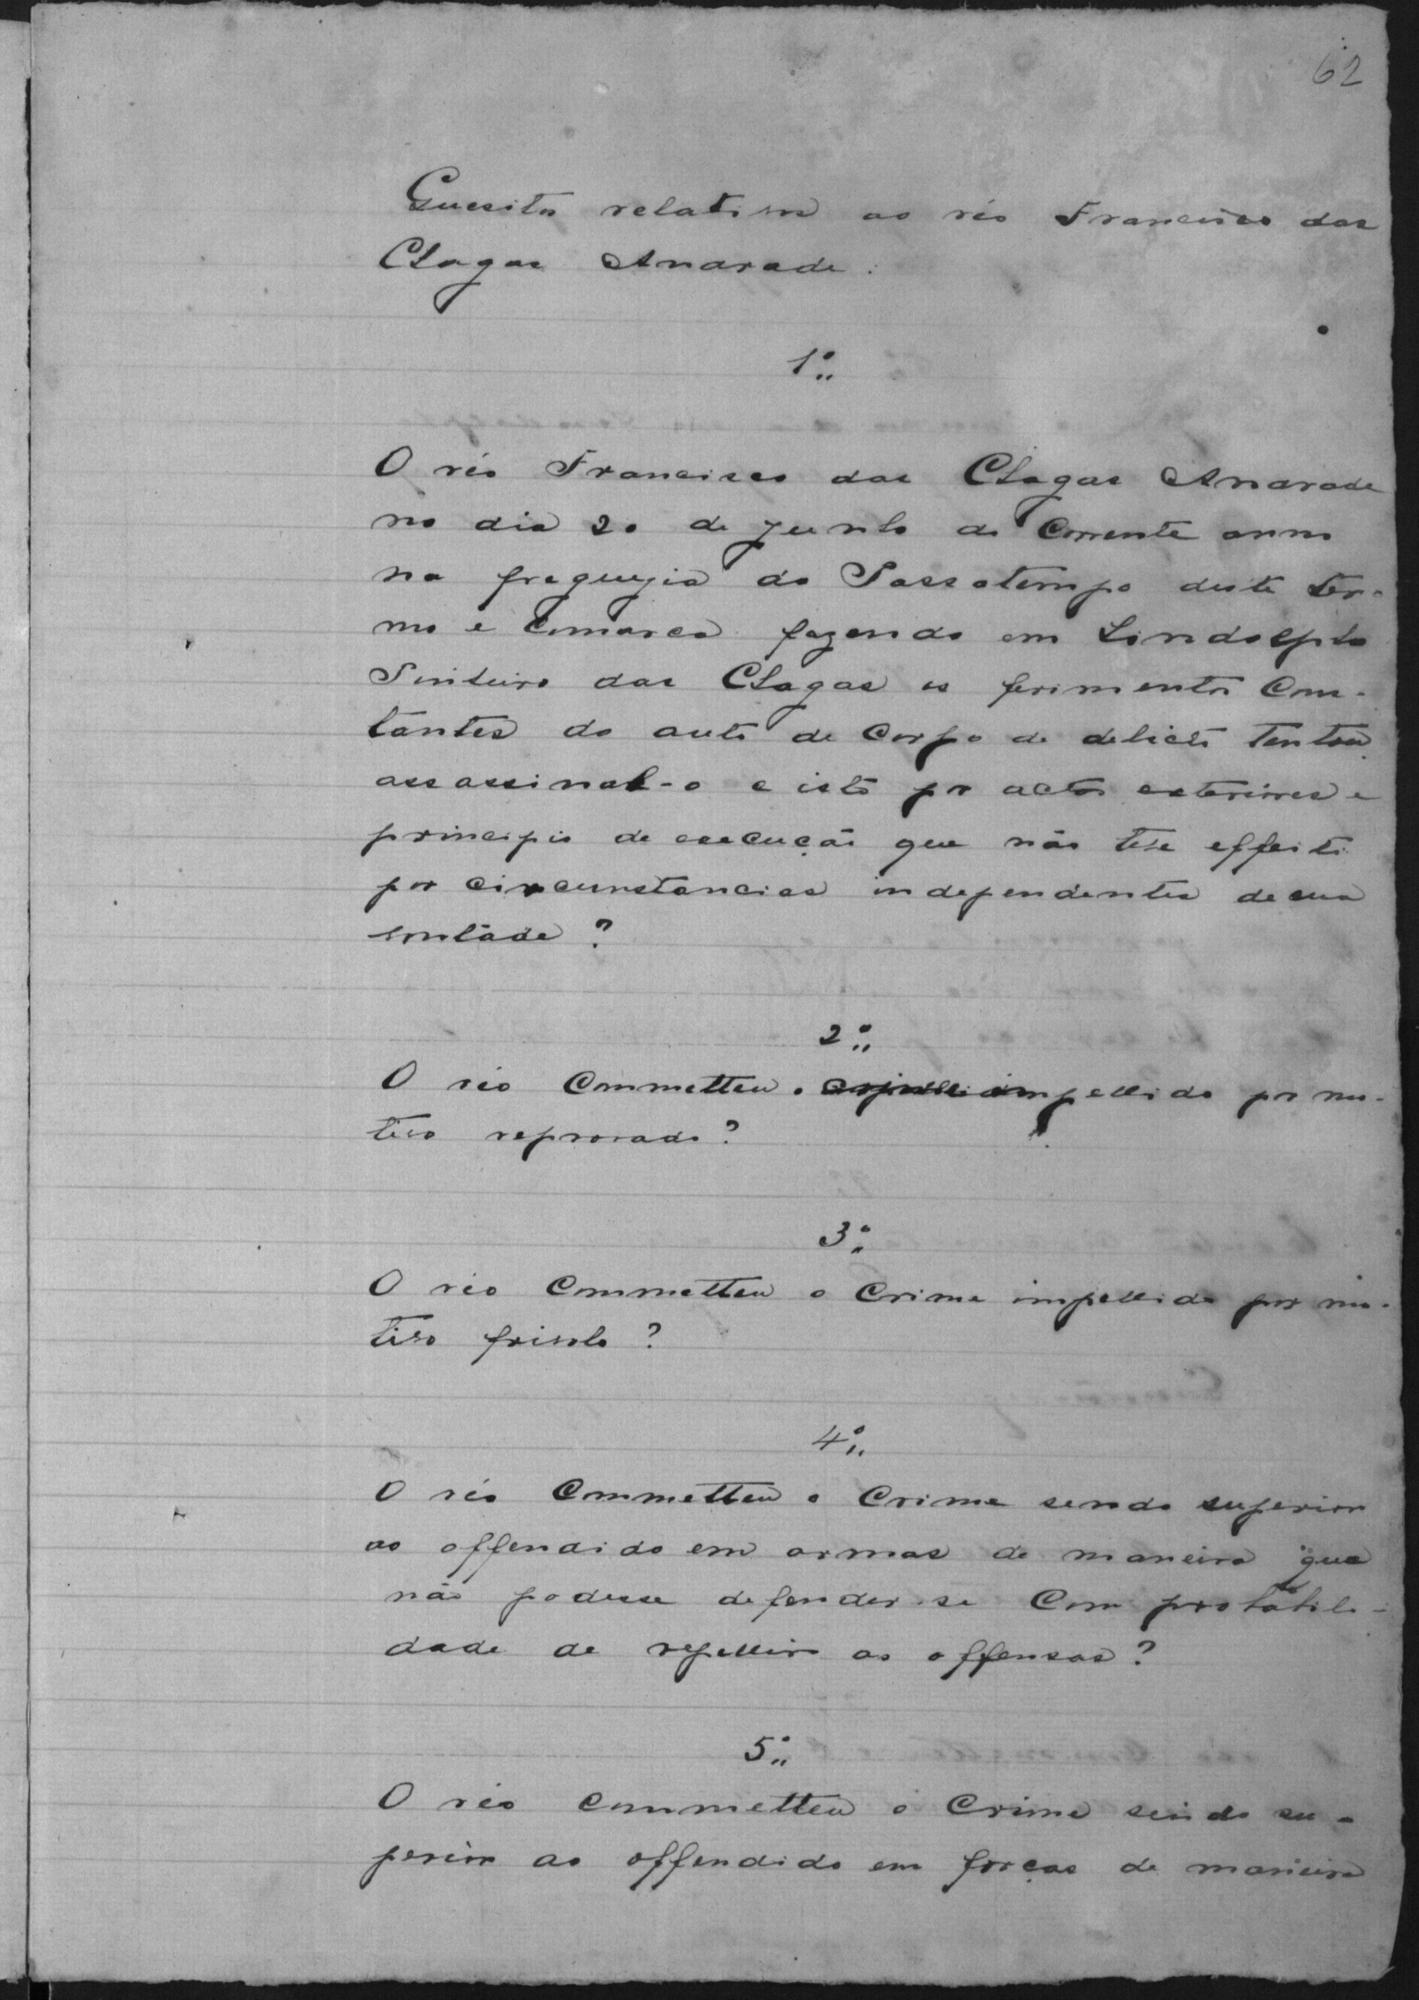 62
Quesitos relativos ao réo Francisco das
Chagas Andrade.
1º
O réo Francisco das Chagas Andrade
no dia 20 de Junho do Corrente anno
na freguezia do Passatempo deste ter-
mo e Comarca fazendo em Lindolpho
Pinheiro das Chagas os ferimentos Cons-
tantes do auto de Corpo de delicto tentou
assassinal-o e isto por actos exteriores e
principio de execução que não teve effeito
por circunstancias independentes de sua
vontade?
2º
O réo Commetteu o impellido por mo-
tivo reprovado?
3º
O réo Commetteu o Crime impellido por mo-
tivo frivolo?
4º
O réo Commetteu o Crime sendo superior
ao offendido em armas de maneira que
não podesse defender-se Com probabili-
dade de repellir as offensas?
5º
O réo Commetteu o Crime sendo su-
perior ao offendido em forças de maneira